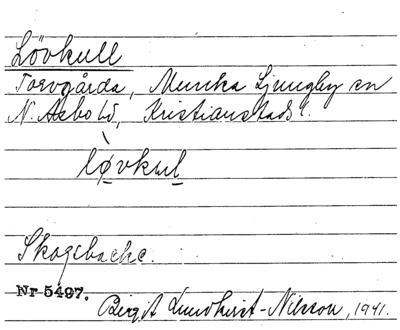 Lövkull
Torvgårda, Munka Ljungby sn
N. Åsbo hd, Kristianstads l.
løvkul
Skogsbacke.
Nr 5497.
Birgit Lundkvist-Nilsson, 1941.